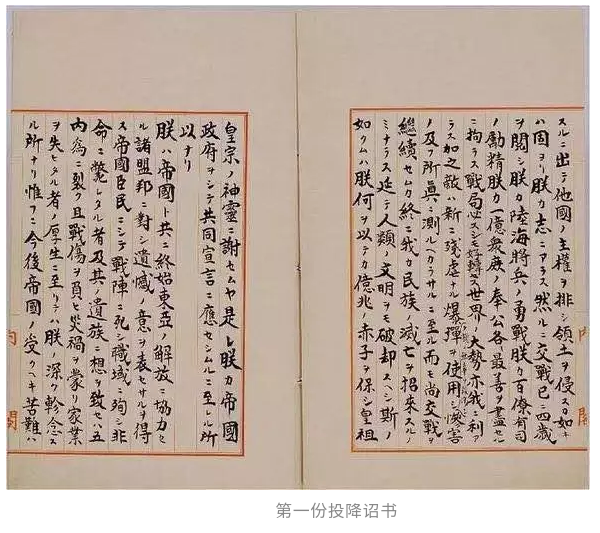 スルニ出テ他國ノ主權ヲ排シ領土ヲ侵スカ如キ
ハ固ヨリ朕カ志ニアラス然ルニ交戰已ニ四歳
ヲ閲シ朕カ陸海將兵ノ勇戰朕カ百僚有司
ノ勵精朕カ一億衆庶ノ奉公各最善ヲ盡セル
ニ拘ラス戰局必スシモ好轉セス世界ノ大勢亦我ニ利ア
ラス加之敵ハ新ニ殘虐ナル爆彈ヲ使用シ慘害
ノ及フ所眞ニ測ルヘカラサルニ至ル而モ尚交戰ヲ
繼續セムカ終ニ我カ民族ノ滅亡ヲ招來スルノ
ミナラス延テ人類ノ文明ヲモ破却スヘシ斯ノ
如クムハ朕何ヲ以テカ億兆ノ赤子ヲ保シ皇祖
皇宗ノ神靈ニ謝セムヤ是レ朕カ帝國
政府ヲシテ共同宣言ニ應セシムルニ至レル所
以ナリ
朕ハ帝國ト共ニ終始東亞ノ解放ニ協力セ
ル諸盟邦ニ對シ遺憾ノ意ヲ表セサルヲ得
ス帝國臣民ニシテ戰陣ニ死シ職域ニ殉シ非
命ニ斃レタル者及其ノ遺族ニ想ヲ致セハ五
内爲ニ裂ク且戰傷ヲ負ヒ災禍ヲ蒙リ家業
ヲ失ヒタル者ノ厚生ニ至リテハ朕ノ深ク軫念ス
ル所ナリ惟フニ今後帝國ノ受クヘキ苦難ハ
内閣
第一份投降诏书